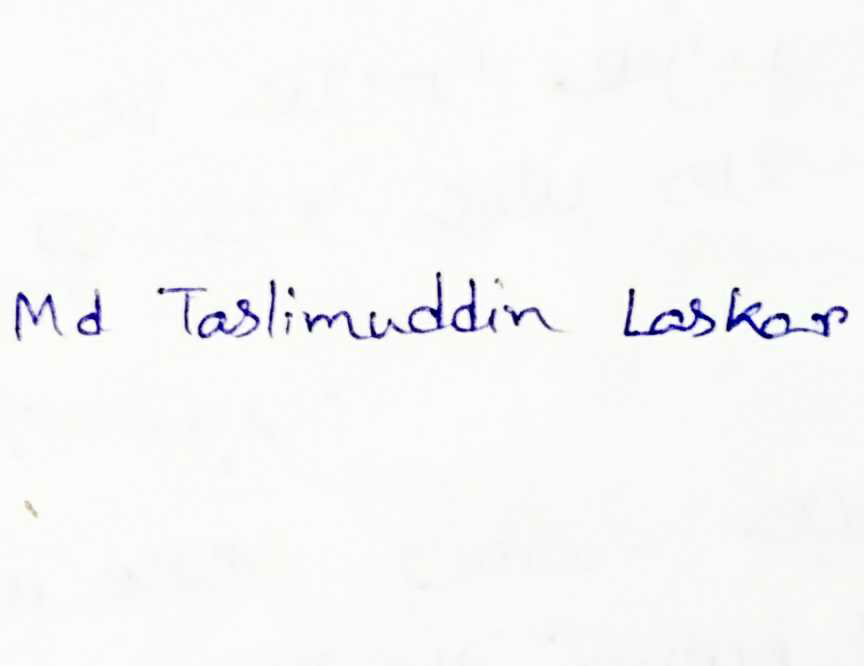 Md Taslimuddin Laskar